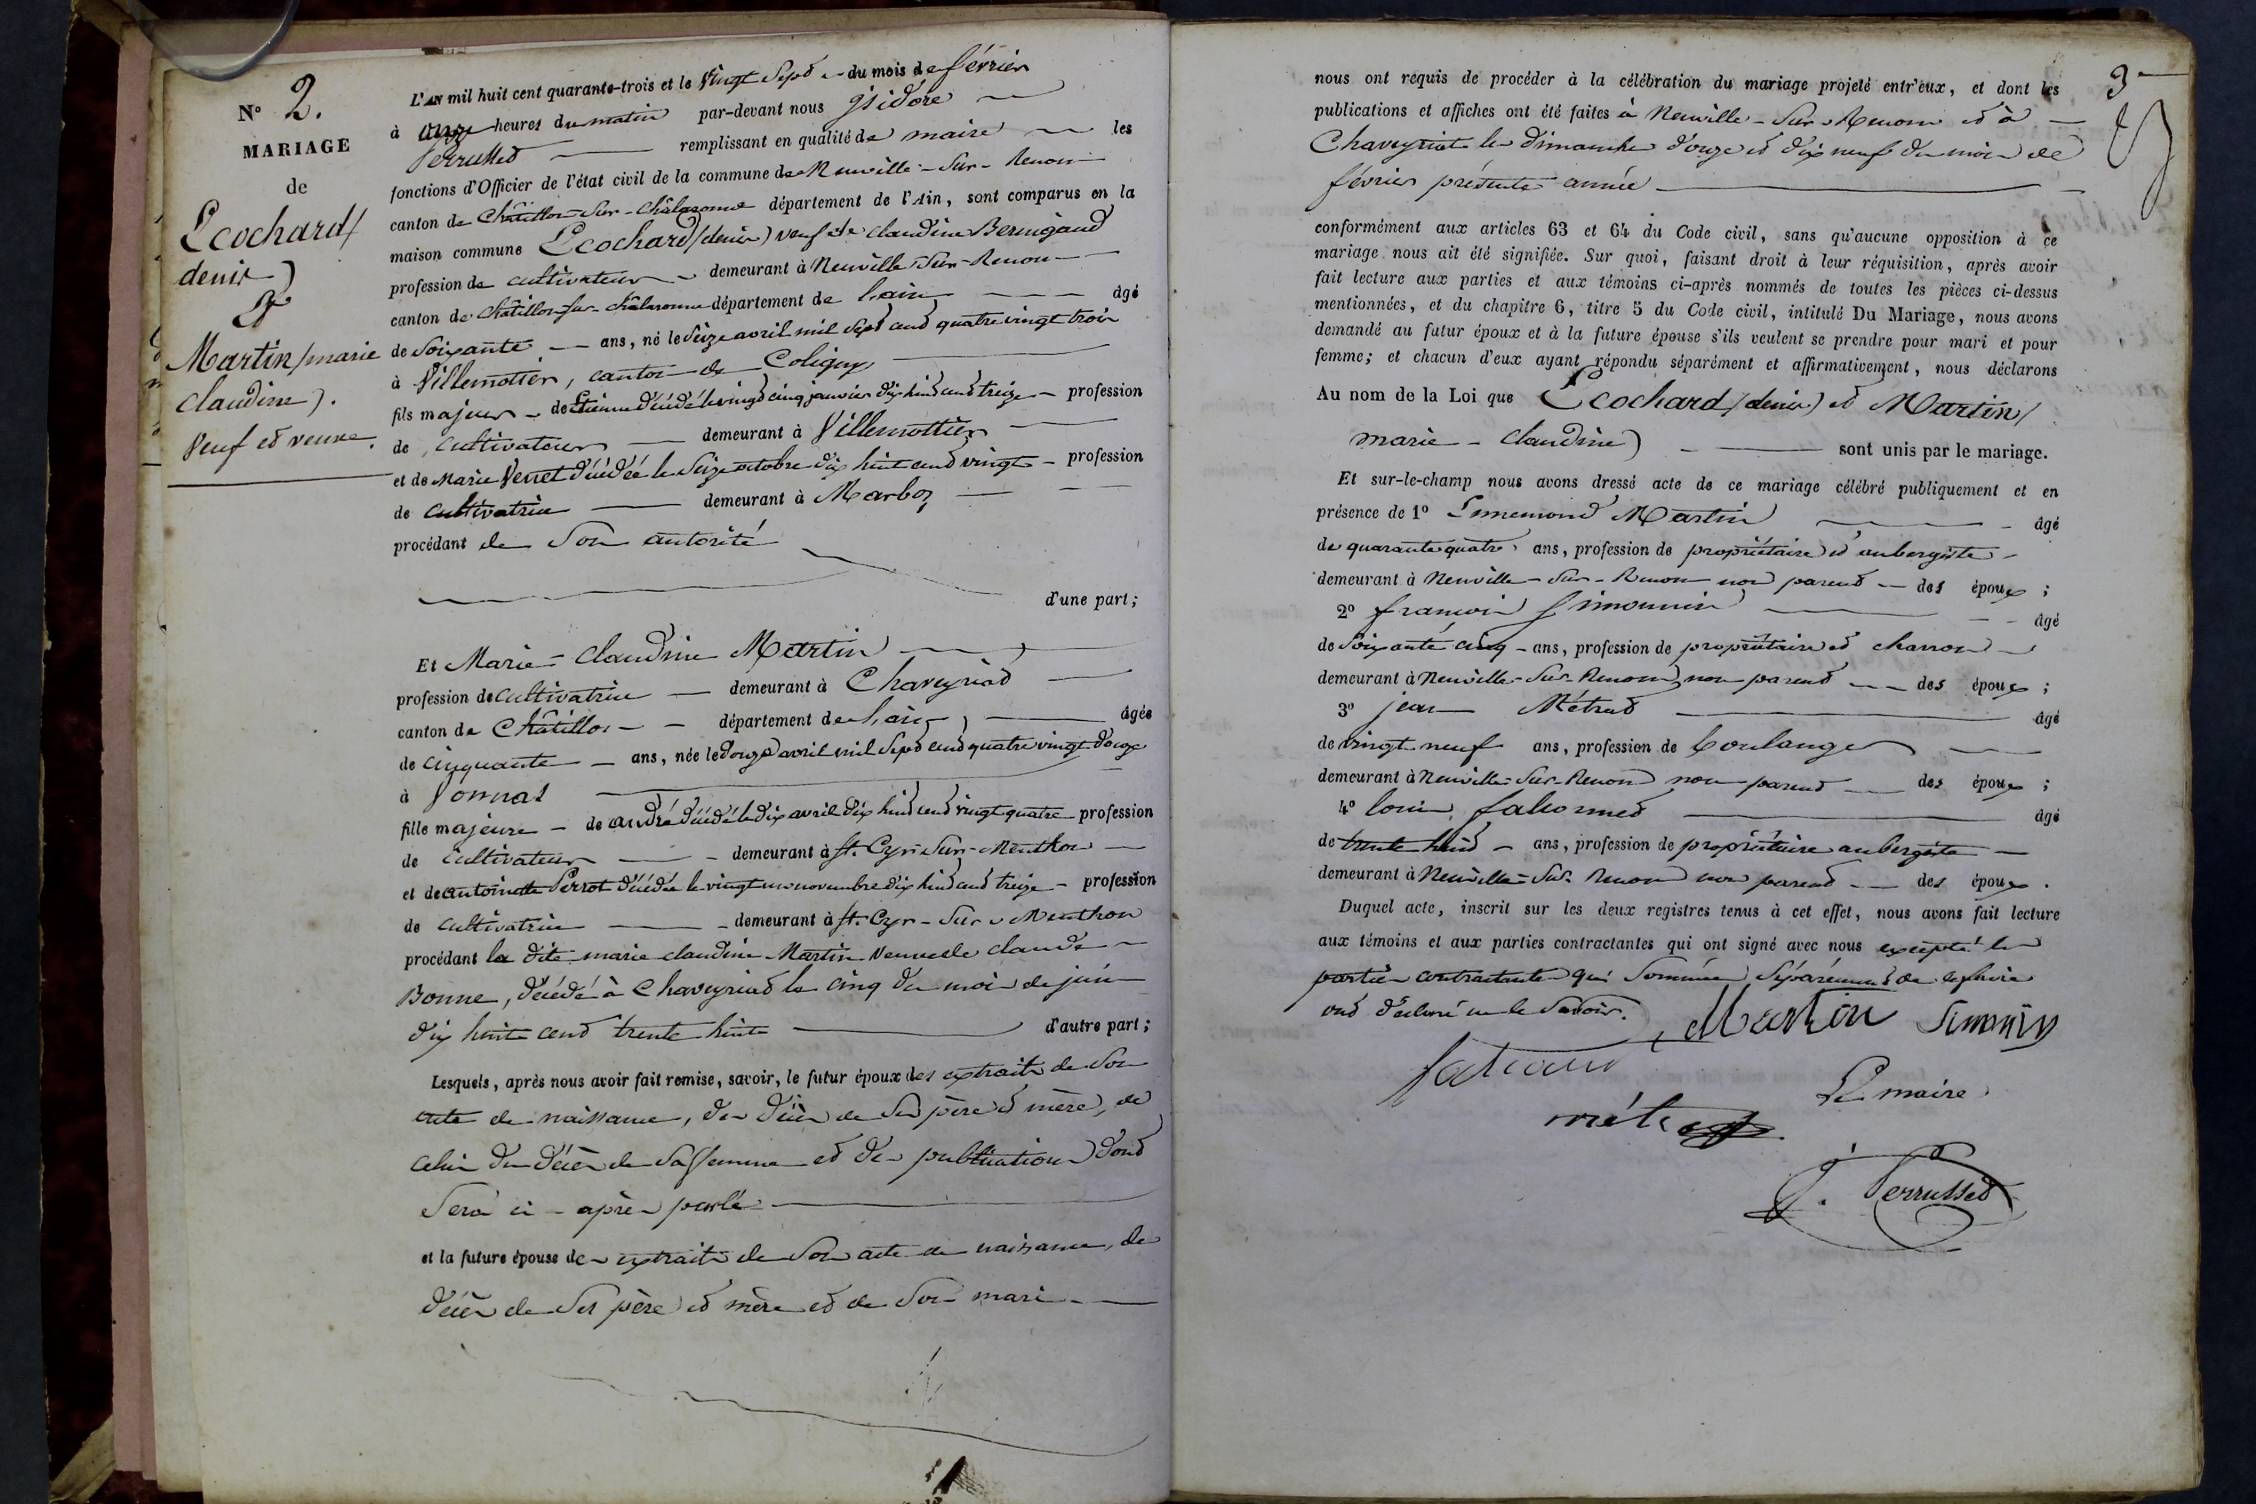 N° 2.
MARIAGE
de
Ecochard (
denis )
&
Martin (marie
claudine ).
Veuf et veuve.
L'AN mil huit cent quarante-trois et le vingt sept du mois de février
à onze heures du matin par-devant nous isidore
Perrusset remplissant en qualité de maire les
fonctions d'Officier de l'état civil de la commune de Neuville-Sur-Renom
canton de Châtillon-Sur-Châlaronne département de l'Ain, sont comparus en la
maison commune Ecochard (denis) veuf de claudine Bernigaud
profession de cultivateur demeurant à Neuville-Sur-Renom
canton de Châtillon-sur-châlaronne département de l'ain âgé
de soixante ans, né le seize avril mil sept cent quatre vingt trois
à Villemotier, canton de Coligny
fils majeur de Etienne décédé le vingt cinq janvier dix huit cent treize profession
de cultivateur demeurant à Villemottier
et de Marie Verret décédée le seize octobre dix huit cent vingt profession
de cultivatrice demeurant à Marboz
procédant de son autorité
d'une part;
Et Marie-claudine Martin
profession de cultivatrice demeurant à Chaveyriat
canton de Châtillon département de l'ain, âgée
de cinquante ans, née le douze avril mil sept cent quatre vingt douze
à Vonnas
fille majeure de andré décédé le dix avril dix huit cent vingt quatre profession
de cultivateur demeurant à st. Cyr-Sur-Menthon
et de antoinette Perrot décédée le vingt un novembre dix huit cent treize profession
de cultivatrice demeurant à st. Cyr-Sur-Menthon
procédant la dite marie claudine Martin veuve de claude
Bonne, décédé à Chaveyriat le cinq du mois de juin
dix huit cent trente huit d'autre part;
Lesquels, après nous avoir fait remise, savoir, le futur époux des extraits de son
acte de naissance, du décès de ses père et mère, de
celui du décès de sa femme et des publications dont
sera ci-après parlé
et la future épouse des extraits de son acte de naissance, de
décès de ses père et mère et de son mari
3
nous ont requis de procéder à la célébration du mariage projeté entr'eux, et dont les
publications et affiches ont été faites à Neuville-Sur-Renom et à
Chaveyriat les dimanche douze et dix neuf du mois de
février présente année
conformément aux articles 63 et 64 du Code civil, sans qu'aucune opposition à ce
mariage nous ait été signifiée. Sur quoi, faisant droit à leur réquisition, après avoir
fait lecture aux parties et aux témoins ci-après nommés de toutes les pièces ci-dessus
mentionnées, et du chapitre 6, titre 5 du Code civil, intitulé Du Mariage, nous avons
demandé au futur époux et à la future épouse s'ils veulent se prendre pour mari et pour
femme; et chacun d'eux ayant répondu séparément et affirmativement, nous déclarons
Au nom de la Loi que Ecochard (denis) et Martin (
marie-claudine) sont unis par le mariage.
Et sur-le-champ nous avons dressé acte de ce mariage célébré publiquement et en
présence de 1° Ennemond Martin âgé
de quarante quatre ans, profession de propriétaire et aubergiste
demeurant à Neuville-Sur-Renom non parent des époux;
2° françois Simonnin âgé
de soixante cinq ans, profession de propriétaire et charron
demeurant à Neuville-Sur-Renom non parent des époux;
3° jean Métrad âgé
de vingt neuf ans, profession de boulanger
demeurant à Neuville-Sur-Renom non parent des époux;
4° louis âgé
de trente huit ans, profession de propriétaire aubergiste
demeurant à Neuville-Sur-Renom non parent des époux.
Duquel acte, inscrit sur les deux registres tenus à cet effet, nous avons fait lecture
aux témoins et aux parties contractantes qui ont signé avec nous excepté les
parties contractantes qui sommées séparément de le faire
ont déclaré ne le savoir.
Martin Simonin
Le maire
métrad
J. Perrusset